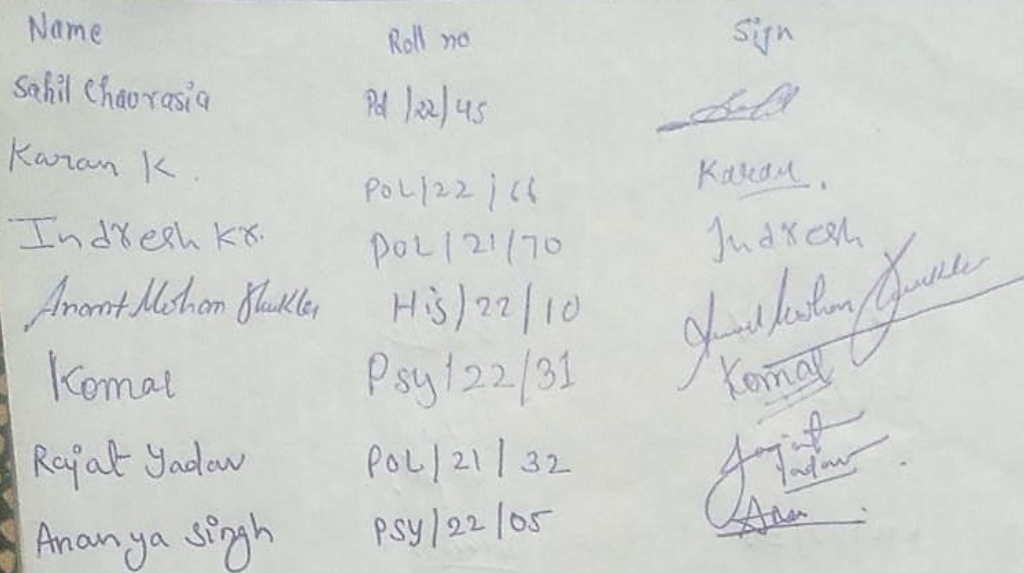 Name Roll no Sign
Sahil Chaorasia Pol/22/45
Karan K. POL/22/66 Karan.
Indresh kr. POL/21/70 Indresh
Anant Mohan Shukla His/22/10 Anant Mohan Shukla
Komal Psy/22/31 Komal
Rajat Yadav POL/21/32 Rajat Yadav.
Ananya Singh PSY/22/05